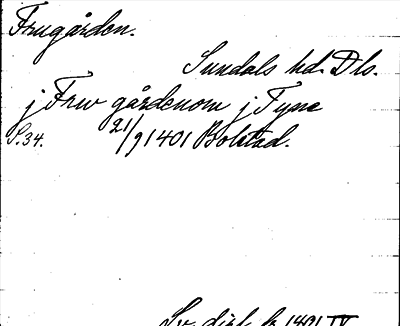 Frugården.
Sundals hd. Dls.
j Frw gårdenom j Typæ
S. 34. 21/9 1401 Bolstad.
Sv. dipl. fr. 1401 IV